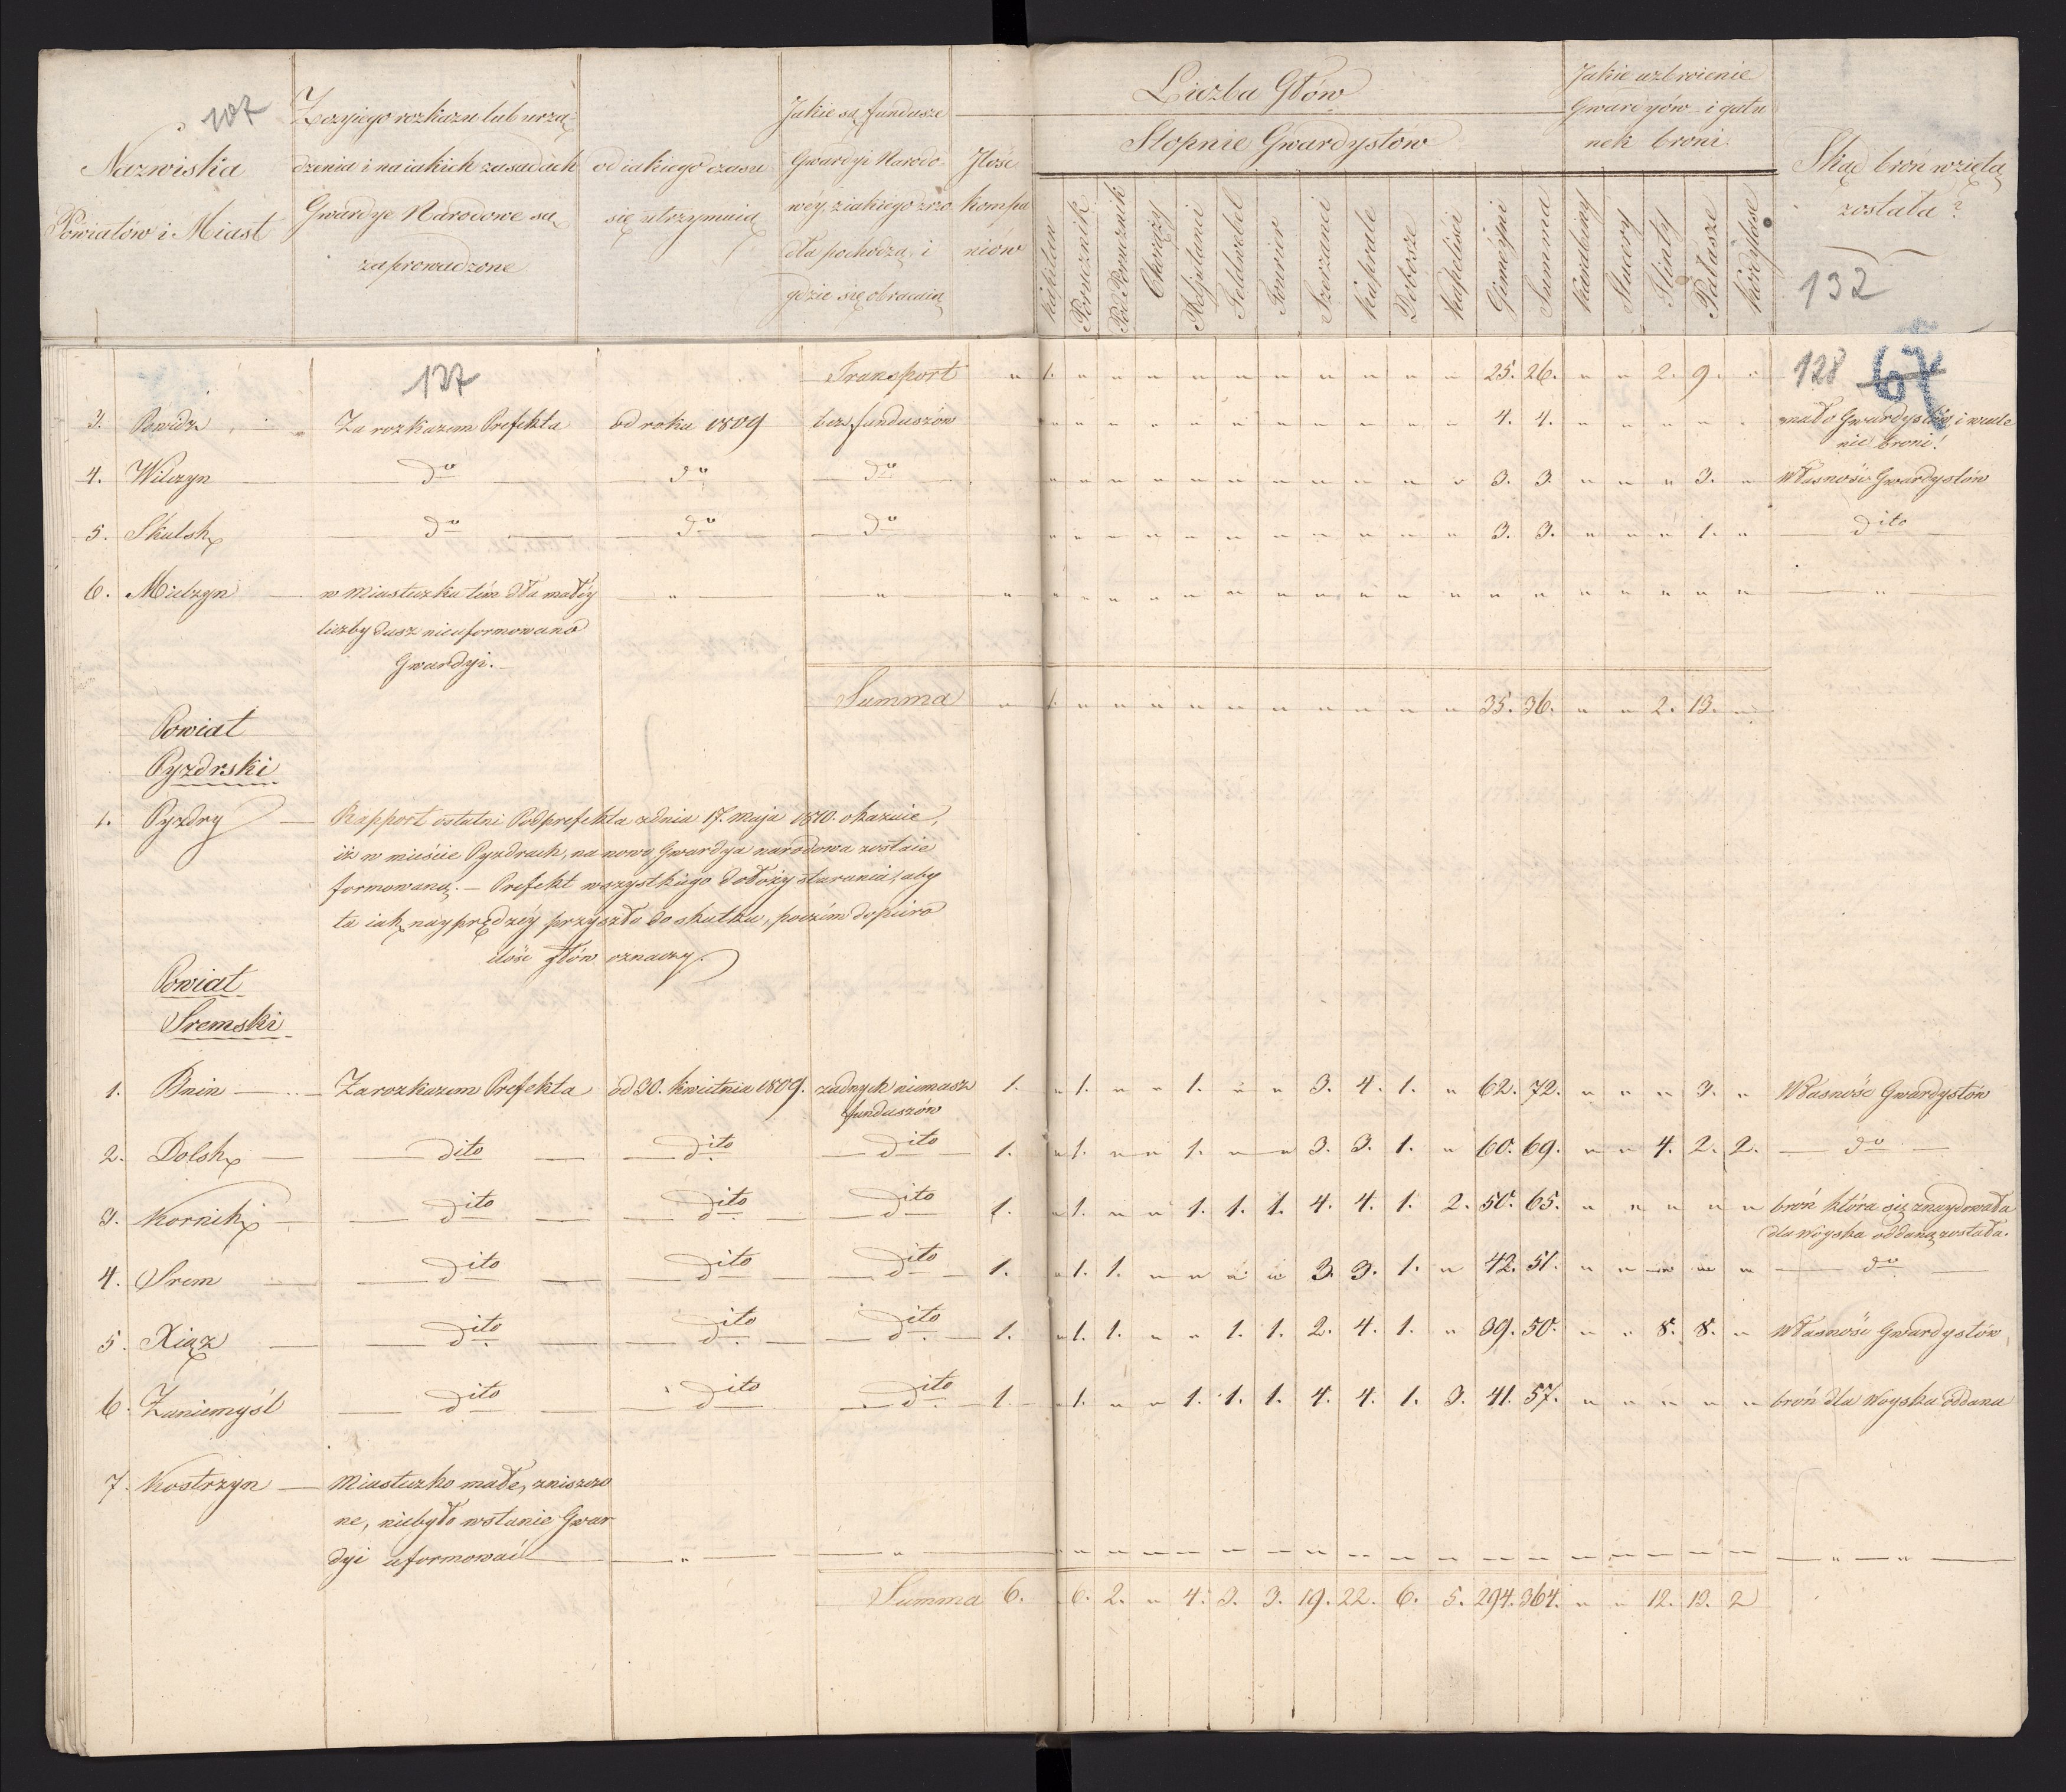 107
Nazwiska
Powiatów i Miast
Z czyjego rozkazu lub urzą-
dzenia i na iakich zasadach
Gwardye Narodowe są
zaprowadzone
od iakiego czasu
się utrzymuią
Jakie są fundusze
Gwardyi Narodo-
wéy, z iakiego zrzo
dła pochodzą, i
gdzie się obracaią
Jlość
kompa
niów
Liczba Głów
Stopnie Gwardystów
Kapitan
Porucznik
Pod Porucznik
Chorąży
Adjutanci
Feldwebel
Fourier
Szerzanci
Kaprale
Dobosze
Hapoliści
Gimeyni
Summa
Jakie uzbroienie
Gwardyów i gatu
nek broni
Karabiny
Stucery
Flinty
Pałasze
Kordylose
Skąd broń wzięta
została?
132
137 Transport " 1. " " " " " " " " " " 25. 26. " " 2. 9. " 128 67
3. Powidz Za rozkazem Prefekta od roku 1809 bez funduszów " " " " " " " " " " " 4. 4. " " " " " mało Gwardystów i wcale
nie broni!
4. Wilczyn do do do " " " " " " " " " " " 3. 3. " " " 3. " Własność Gwardystów
5. Skulsk do do do " " " " " " " " " " " 3. 3. " " " 1. " dito
6. Mielzyn w Miasteczku tém dla małéy " " " " " " " " " " " " " " " " " " " " " "
liczby dusz nieuformowano
Gwardyi.
Summa " 1. " " " " " " " " " " 35. 36. " " 2. 13. "
Powiat
Pyzdrski
1. Pyzdry Rapport ostatni Podprefekta z dnia 17. maja 1810. okazuie,
iż w mieście Pyzdrach, na nowo Gwardya narodowa zostaie
formowaną. — Prefekt wszystkiego dołoży starania, aby
ta iak nayprędzéy przyszła do skutku, poczém dopiero
ilość głów oznaczy.
Powiat
Sremski
1. Bnin Za rozkazem Prefekta od 30. kwietnia 1809. żadnych niemasz 1. " 1. " " 1. " " 3. 4. 1. " 62. 72. " " " 3. " Własność Gwardystów
funduszów
2. Dolsk dito dito dito 1. " 1. " " 1. " " 3. 3. 1. " 60. 69. " " 4. 2. 2. do
3. Kornik dito dito dito 1. " 1. " " 1. 1. 1. 4. 4. 1. 2. 50. 65. " " " " " broń która się znaydowała
dla woyska oddaną została.
4. Srem dito dito dito 1. " 1. 1. " " " " 3. 3. 1. " 42. 51. " " " " " do
5. Xiąz dito dito dito 1. " 1. 1. " " 1. 1. 2. 4. 1. " 39. 50. " " 8. 8. " Własność Gwardystów
6. Zaniemyśl dito dito dito 1. " 1. " " 1. 1. 1. 4. 4. 1. 3. 41. 57. " " " " " broń dla Woyska oddana
7. Kostrzyn Miasteczko małe, zniszczo
ne, niebyło w stanie Gwar
dyi uformować " " " " " " " " " " " " " " " " " " " " " "
Summa 6. " 6. 2. " 4. 3. 3. 19. 22. 6. 5. 294. 364. " " 12. 13. 2